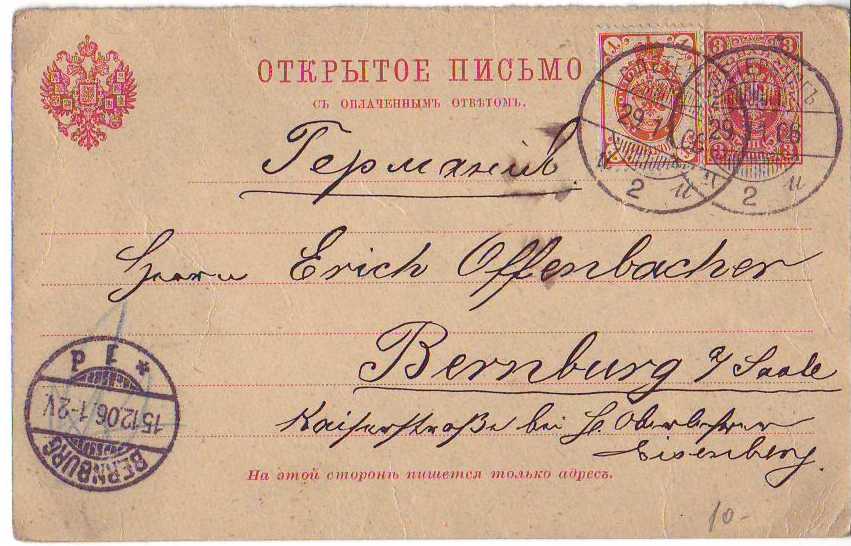 ОТКРЫТОЕ ПИСЬМО
СЪ ОПЛАЧЕННЫМЪ ОТВѢТОМЪ.
3 3
3 3
29 11 06
29 06
2
2
Германія.
Herrn Erich Offenbacher
Bernburg a/Saale
Kaiserstraße bei H. Oberlehrer
Eisenberg.
На этой сторонѣ пишется только адресъ.
BERNBURG
15.12.06.1-2V.
10-